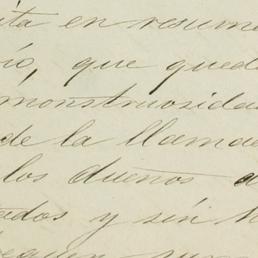 ita en resum
ío, que qued
monstruosida
de la llama
los dueños a
ados y sin